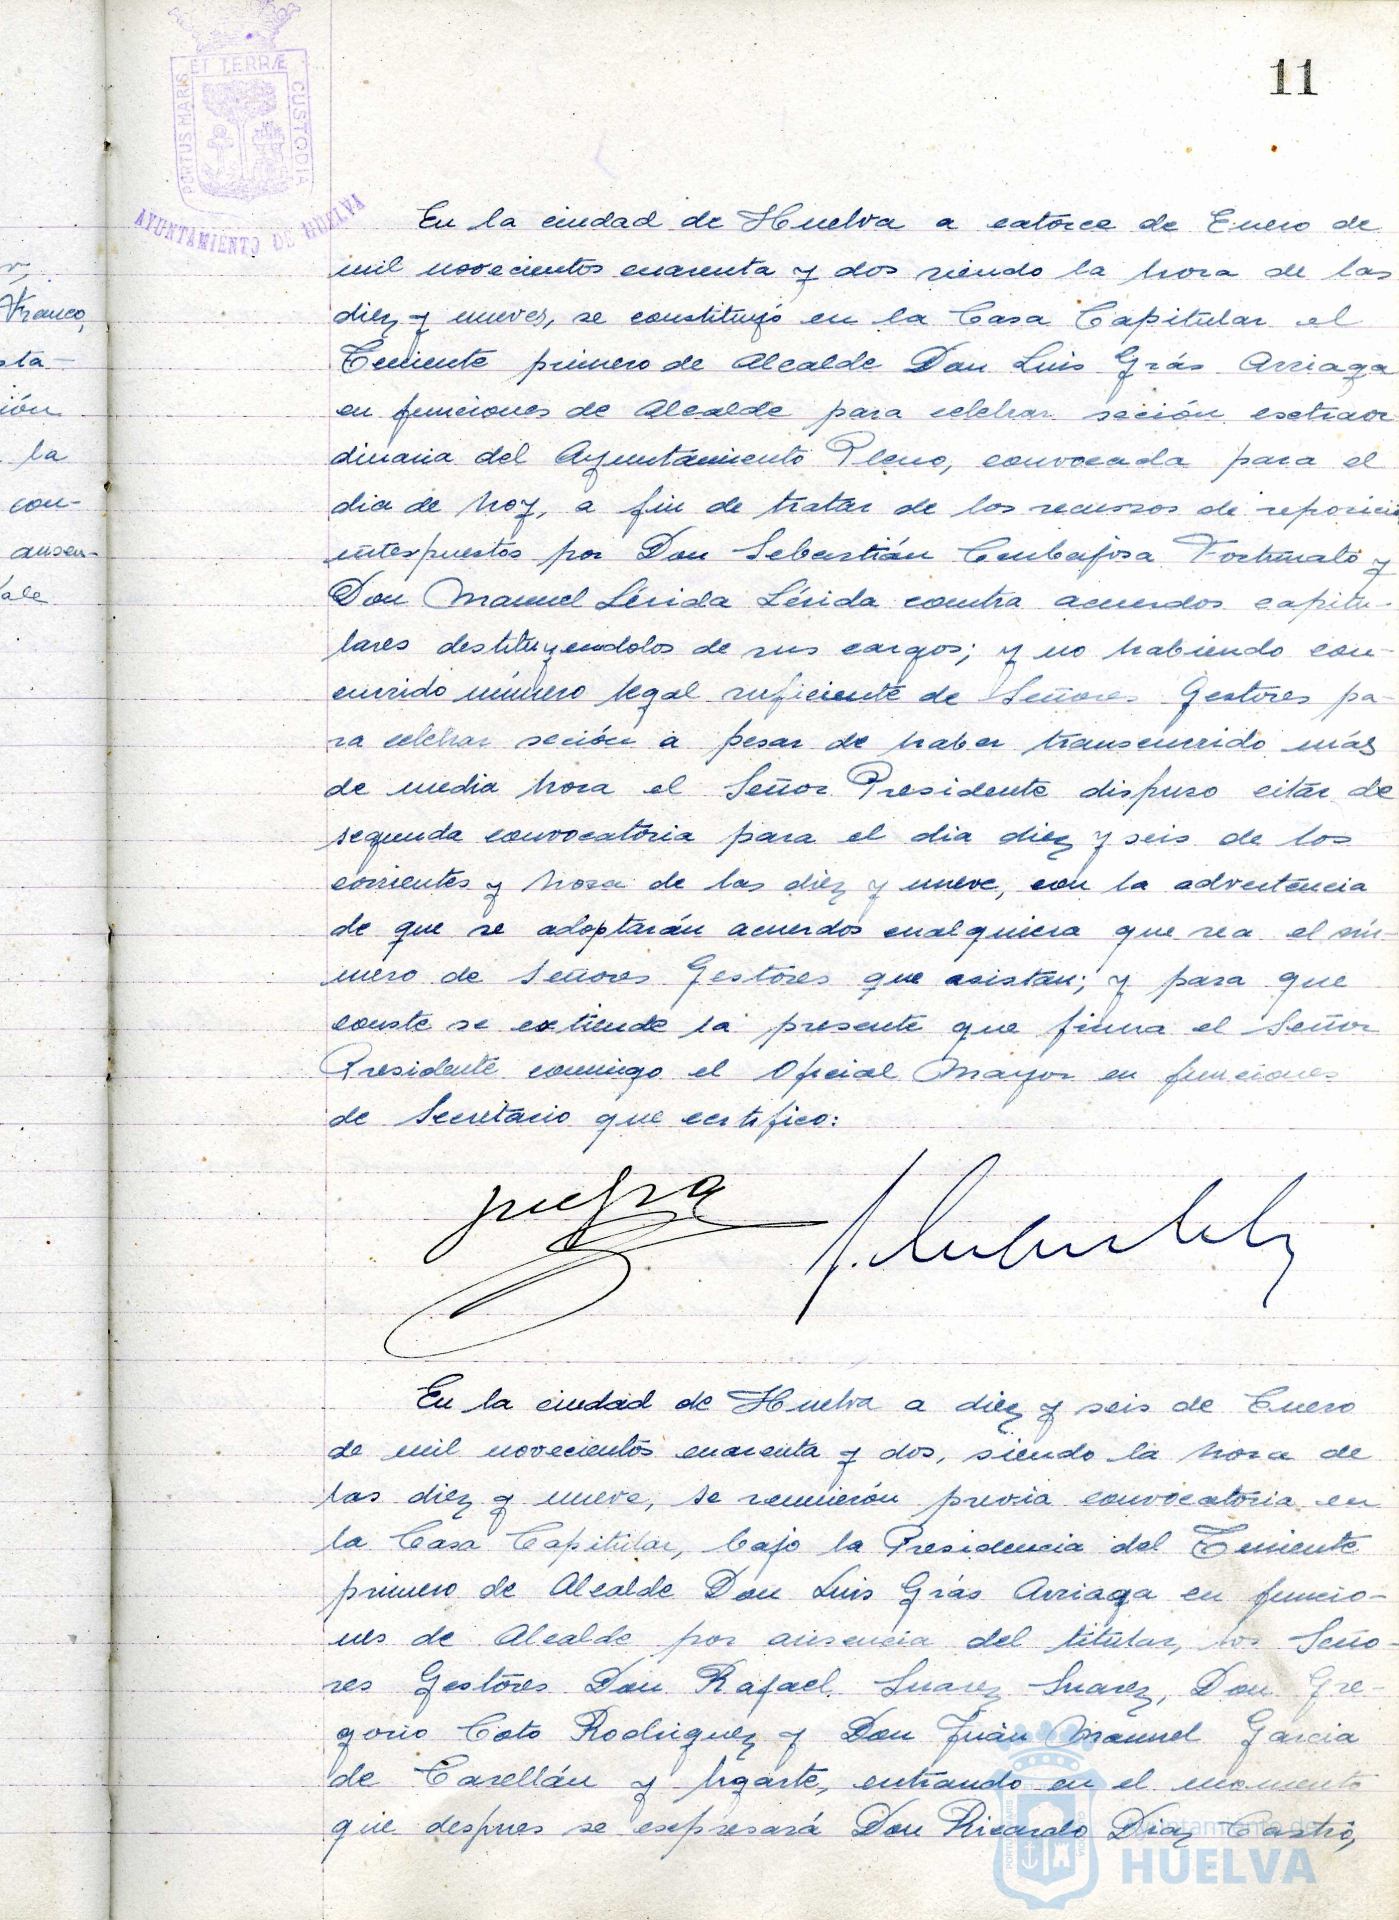 11
PORTUS MARIS ET TERRÆ CUSTODIA
AYUNTAMIENTO DE HUELVA
Franco,
sta-
ión
la
con-
ausen-
Vale
En la ciudad de Huelva a catorce de Enero de
mil novecientos cuarenta y dos siendo la hora de las
diez y nueves, se constituyó en la Casa Capitular el
Teniente primero de Alcalde Don Luis Grás Arriaga
en funciones de Alcalde para celebrar seción esctraor
dinaria del Ayuntamiento Pleno, convocada para el
dia de hoy, a fin de tratar de los recursos de reposició
interpuestos por Don Sebastián Carbajosa Fortunato y
Don Manuel Lérida Lérida contra acuerdos capitu-
lares destituyendolos de sus cargos; y no habiendo con-
currido número legal suficiente de Señores Gestores pa-
ra celebrar seción a pesar de haber transcurrido más
de media hora el Señor Presidente dispuso citar de
segunda convocatoria para el dia diez y seis de los
corrientes y hora de las diez y nueve, con la advertencia
de que se adoptarán acuerdos cualquiera que sea el nú-
mero de Señores Gestores que asistan; y para que
conste se extiende la presente que firma el Señor
Presidente conmigo el Oficial Mayor en funciones
de Secretario que certifico:
En la ciudad de Huelva a diez y seis de Enero
de mil novecientos cuarenta y dos, siendo la hora de
las diez y nueve, se reunierón previa convocatoria en
la Casa Capitular, bajo la Presidencia del Teniente
primero de Alcalde Don Luis Grás Arriaga en funcio-
nes de Alcalde por ausencia del titular, los Seño-
res Gestores Don Rafael Suarez Suarez, Don Gre-
gorio Coto Rodriguez y Don Juan Manuel Garcia
de Casellán y Ugarte, entrando en el momento
que despues se escpresará Don Ricardo Diaz Castro,
Ayuntamiento de
HUELVA